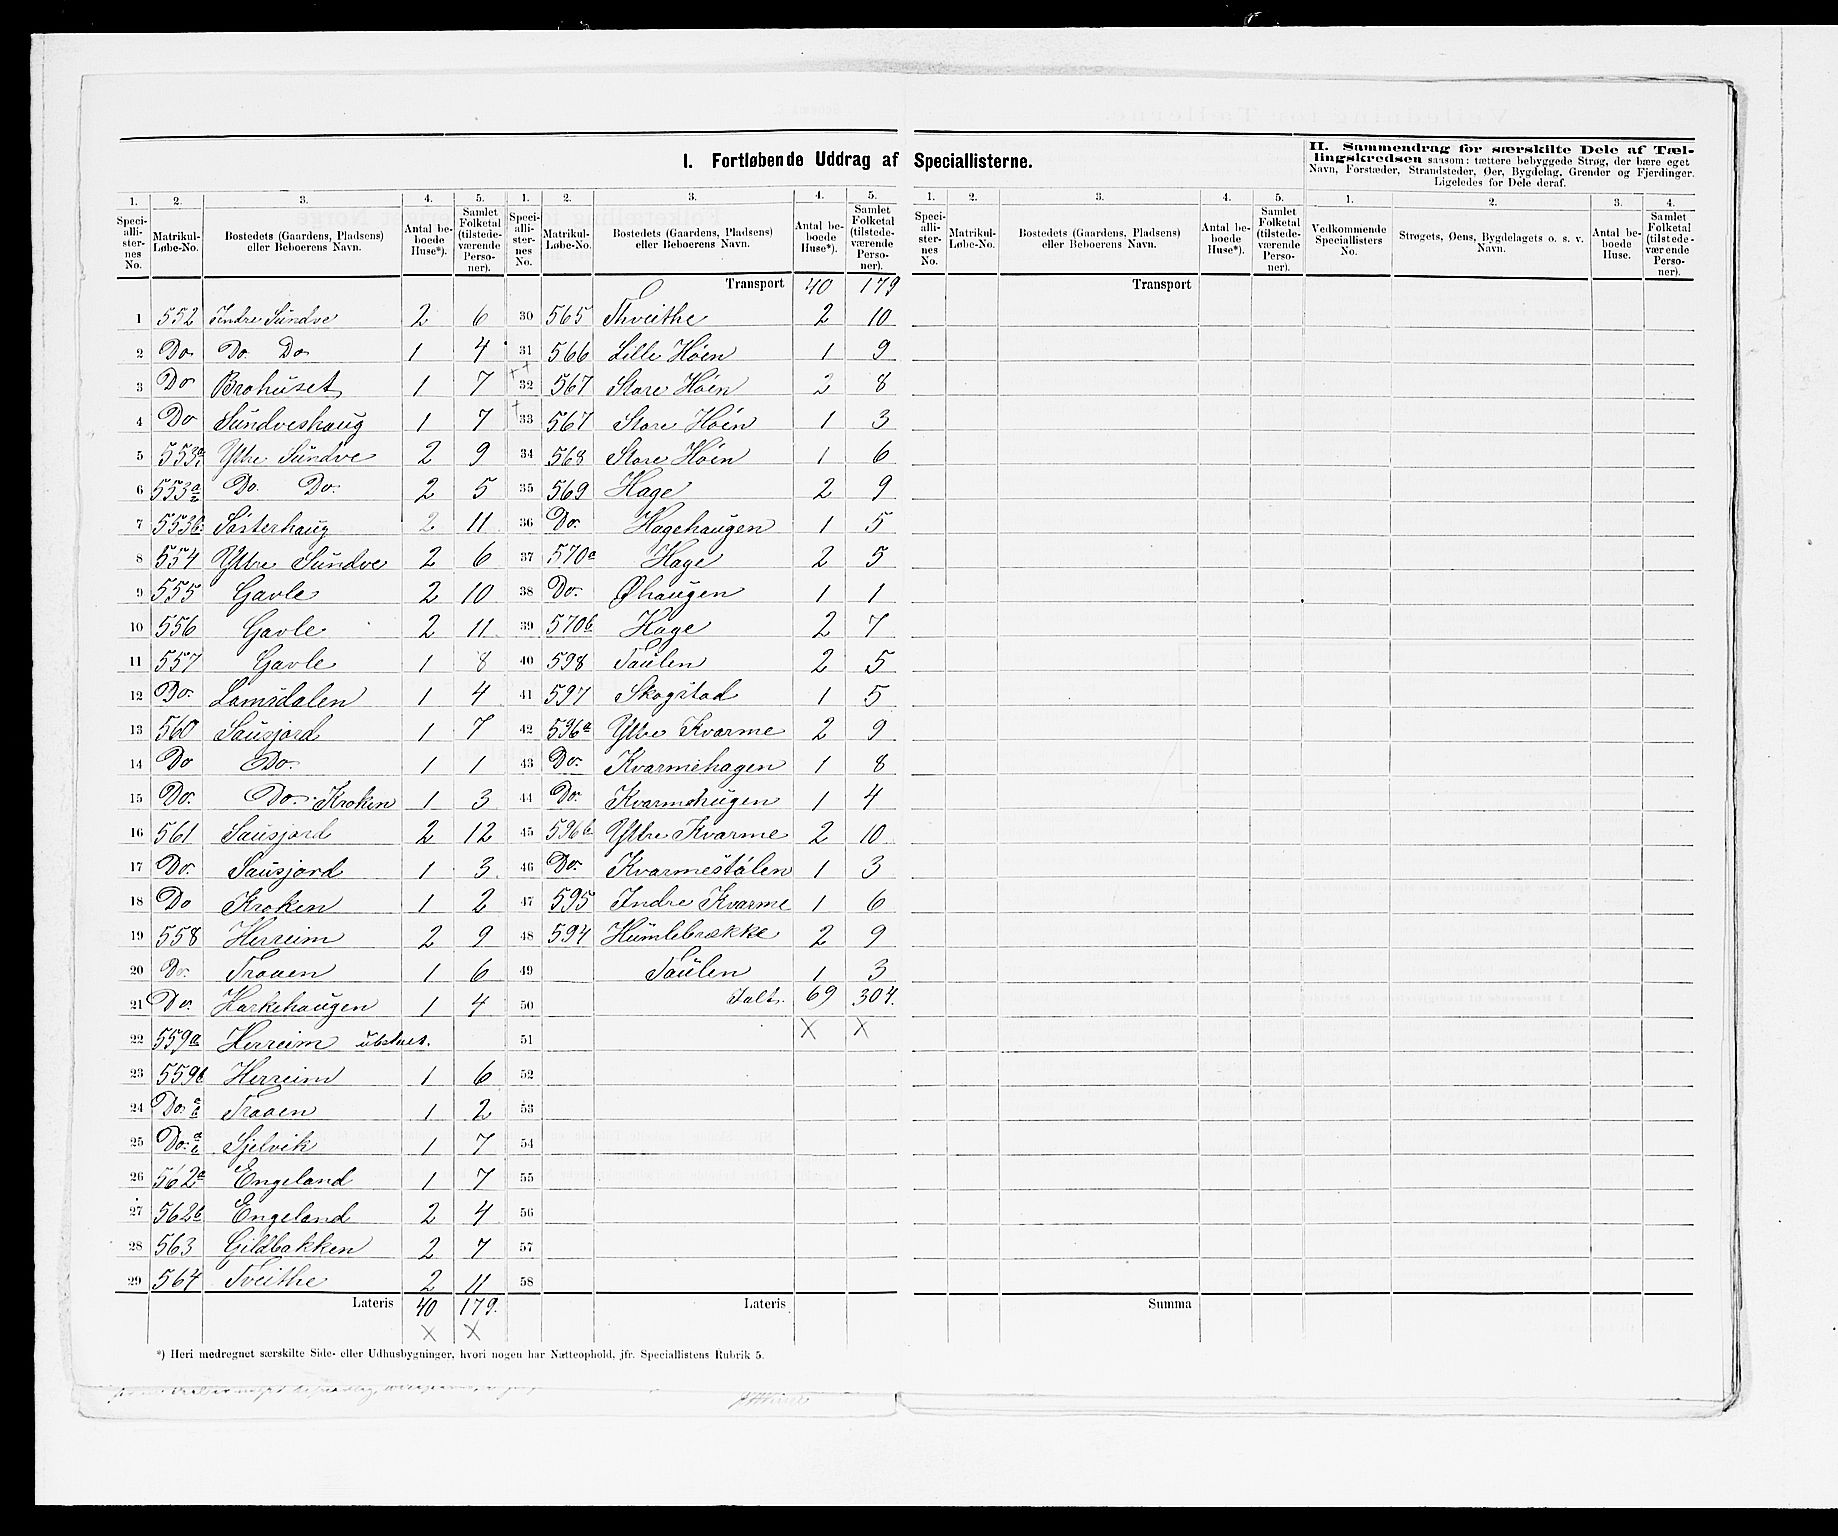 I. Fortløbende Uddrag af Speciallisterne.
II. Sammendrag for særskilte Dele af Tællingskredsen saasom: tættere bebyggede Strøg, der bære eget
Navn, Forstæder, Strandsteder, Øer, Bygdelag, Grender og Fjerdinger.
Ligeledes for Dele deraf.
1. 2. 3. 4. 5. 1. 2. 3. 4. 5. 1. 2. 3. 4. 5. 1. 2. 3. 4.
Speciallisternes No. Matrikul-Løbe-No. Bostedets (Gaardens, Pladsens) eller Beboerens Navn. Antal beboede Huse*). Samlet Folketal (tilstedeværende Personer).
Speciallisternes No. Matrikul-Løbe-No. Bostedets (Gaardens, Pladsens) eller Beboerens Navn. Antal beboede Huse*). Samlet Folketal (tilstedeværende Personer).
Speciallisternes No. Matrikul-Løbe-No. Bostedets (Gaardens, Pladsens) eller Beboerens Navn. Antal beboede Huse*). Samlet Folketal (tilstedeværende Personer).
Vedkommende Speciallisters No. Strøgets, Øens, Bygdelagets o. s. v. Navn. Antal beboede Huse. Samlet Folketal (tilstedeværende Personer).
1 552 Indre Sundve 2 6
2 Do Do. Do 1 4
3 Do Brohuset 1 7
4 Do Sundveshaug 1 7
5 553a1 Ytre Sundve 2 9
6 553a2 Do. Do. 2 5
7 553b Sösterhaug 2 11
8 554 Ytre Sundve 2 6
9 555 Gavle 2 10
10 556 Gavle 2 11
11 557 Gavle 1 8
12 Do. Lamsdalen 1 4
13 560 Sausjord 1 7
14 Do Do. 1 1
15 Do. Do. Kroken 1 3
16 561 Sausjord 2 12
17 Do. Sausjord 1 3
18 Do Kroken 1 2
19 558 Herreim 2 9
20 Do. Traaen 1 6
21 Do. Harkehaugen 1 4
22 559a Herreim ubeboet.
23 559b Herreim 1 6
24 Do. a b Traaen 1 2
25 Do. a b Sjelvik 1 7
26 562a Engeland 1 7
27 562b Engeland 2 4
28 563 Gildbakken 2 7
29 564 Tveithe 2 11
Lateris 40 179.
X X
Transport 40 179
30 565 Thveithe 2 10
31 566 Lille Höen 1 9
32 567 Store Höen 2 8
33 567 Store Höen 1 3
34 568 Store Höen 1 6
35 569 Hage 2 9
36 Do. Hagehaugen 1 5
37 570a Hage 2 5
38 Do. Øhaugen 1 1
39 570b Hage 2 7
40 598 Taulen 2 5
41 597 Skogstad 1 5
42 596a Ytre Kvarme 2 9
43 Do. Kvarmehagen 1 8
44 Do. Kvarmehugen 1 4
45 596b Ytre Kvarme 2 10
46 Do. Kvarmestölen 1 3
47 595 Indre Kvarme 1 6
48 594 Humlebrække 2 9
49 Taulen 1 3
50 Ialt. 69 304.
51 X X
52
53
54
55
56
57
58
Lateris
Transport
Summa
*) Heri medregnet særskilte Side- eller Udhusbygninger, hvori nogen har Natteophold, jfr. Speciallistens Rubrik 5.